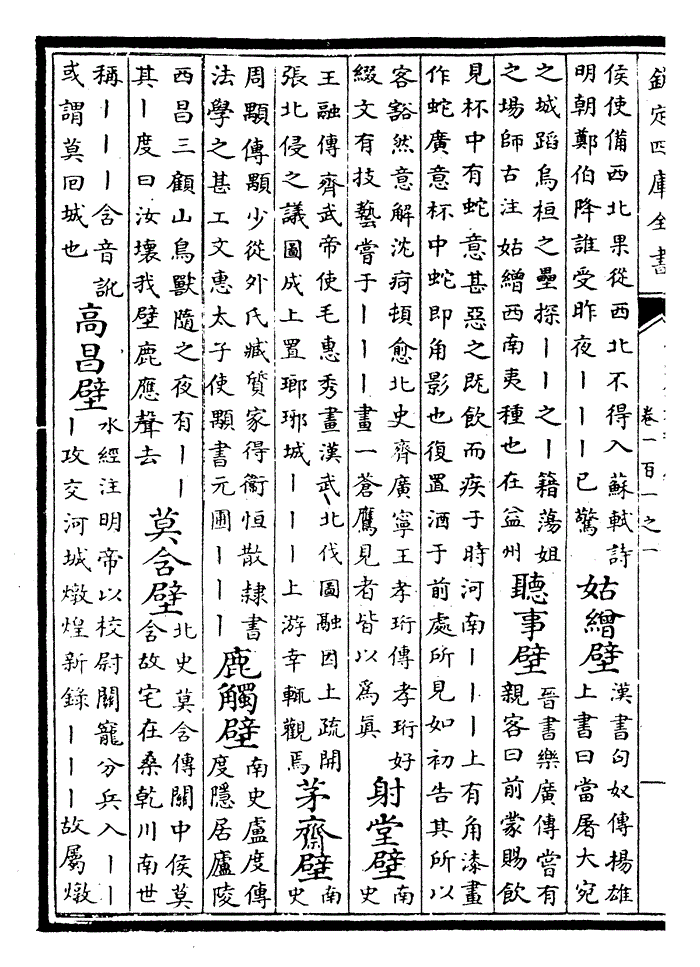 欽定四庫全書
卷一百一之一
侯使備西北果從西北不得入蘇軾詩
明朝鄭伯降誰受昨夜丨丨丨已驚
姑繒壁
漢書匈奴傳揚雄
上書曰當屠大宛
之城蹈烏桓之壘探丨丨之丨籍蕩姐
之場師古注姑繒西南夷種也在益州
聽事壁
晉書樂廣傳嘗有
親客曰前蒙賜飲
見杯中有蛇意甚惡之既飲而疾于時河南丨丨丨上有角漆畫
作蛇廣意杯中蛇即角影也復置酒于前處所見如初告其所以
客豁然意解沈疴頓愈北史齊廣寧王孝珩傳孝珩好
綴文有技藝嘗于丨丨丨畫一蒼鷹見者皆以爲眞
射堂壁
南
史
王融傳齊武帝使毛惠秀畫漢武北伐圖融因上疏開
張北侵之議圖成上置瑯琊城丨丨丨上游幸輒觀焉
茅齋壁
南
史
周顒傳顒少從外氏臧質家得衞恒散隸書
法學之甚工文惠太子使顒書元圃丨丨丨
鹿觸壁
南史盧度傳
度隱居廬陵
西昌三顧山鳥獸隨之夜有丨丨
其丨度曰汝壞我壁鹿應聲去
莫含壁
北史莫含傳關中侯莫
含故宅在桑乾川南世
稱丨丨丨含音訛
或謂莫回城也
高昌壁
水經注明帝以校尉關寵分兵入丨丨
丨攻交河城燉煌新録丨丨丨故屬燉